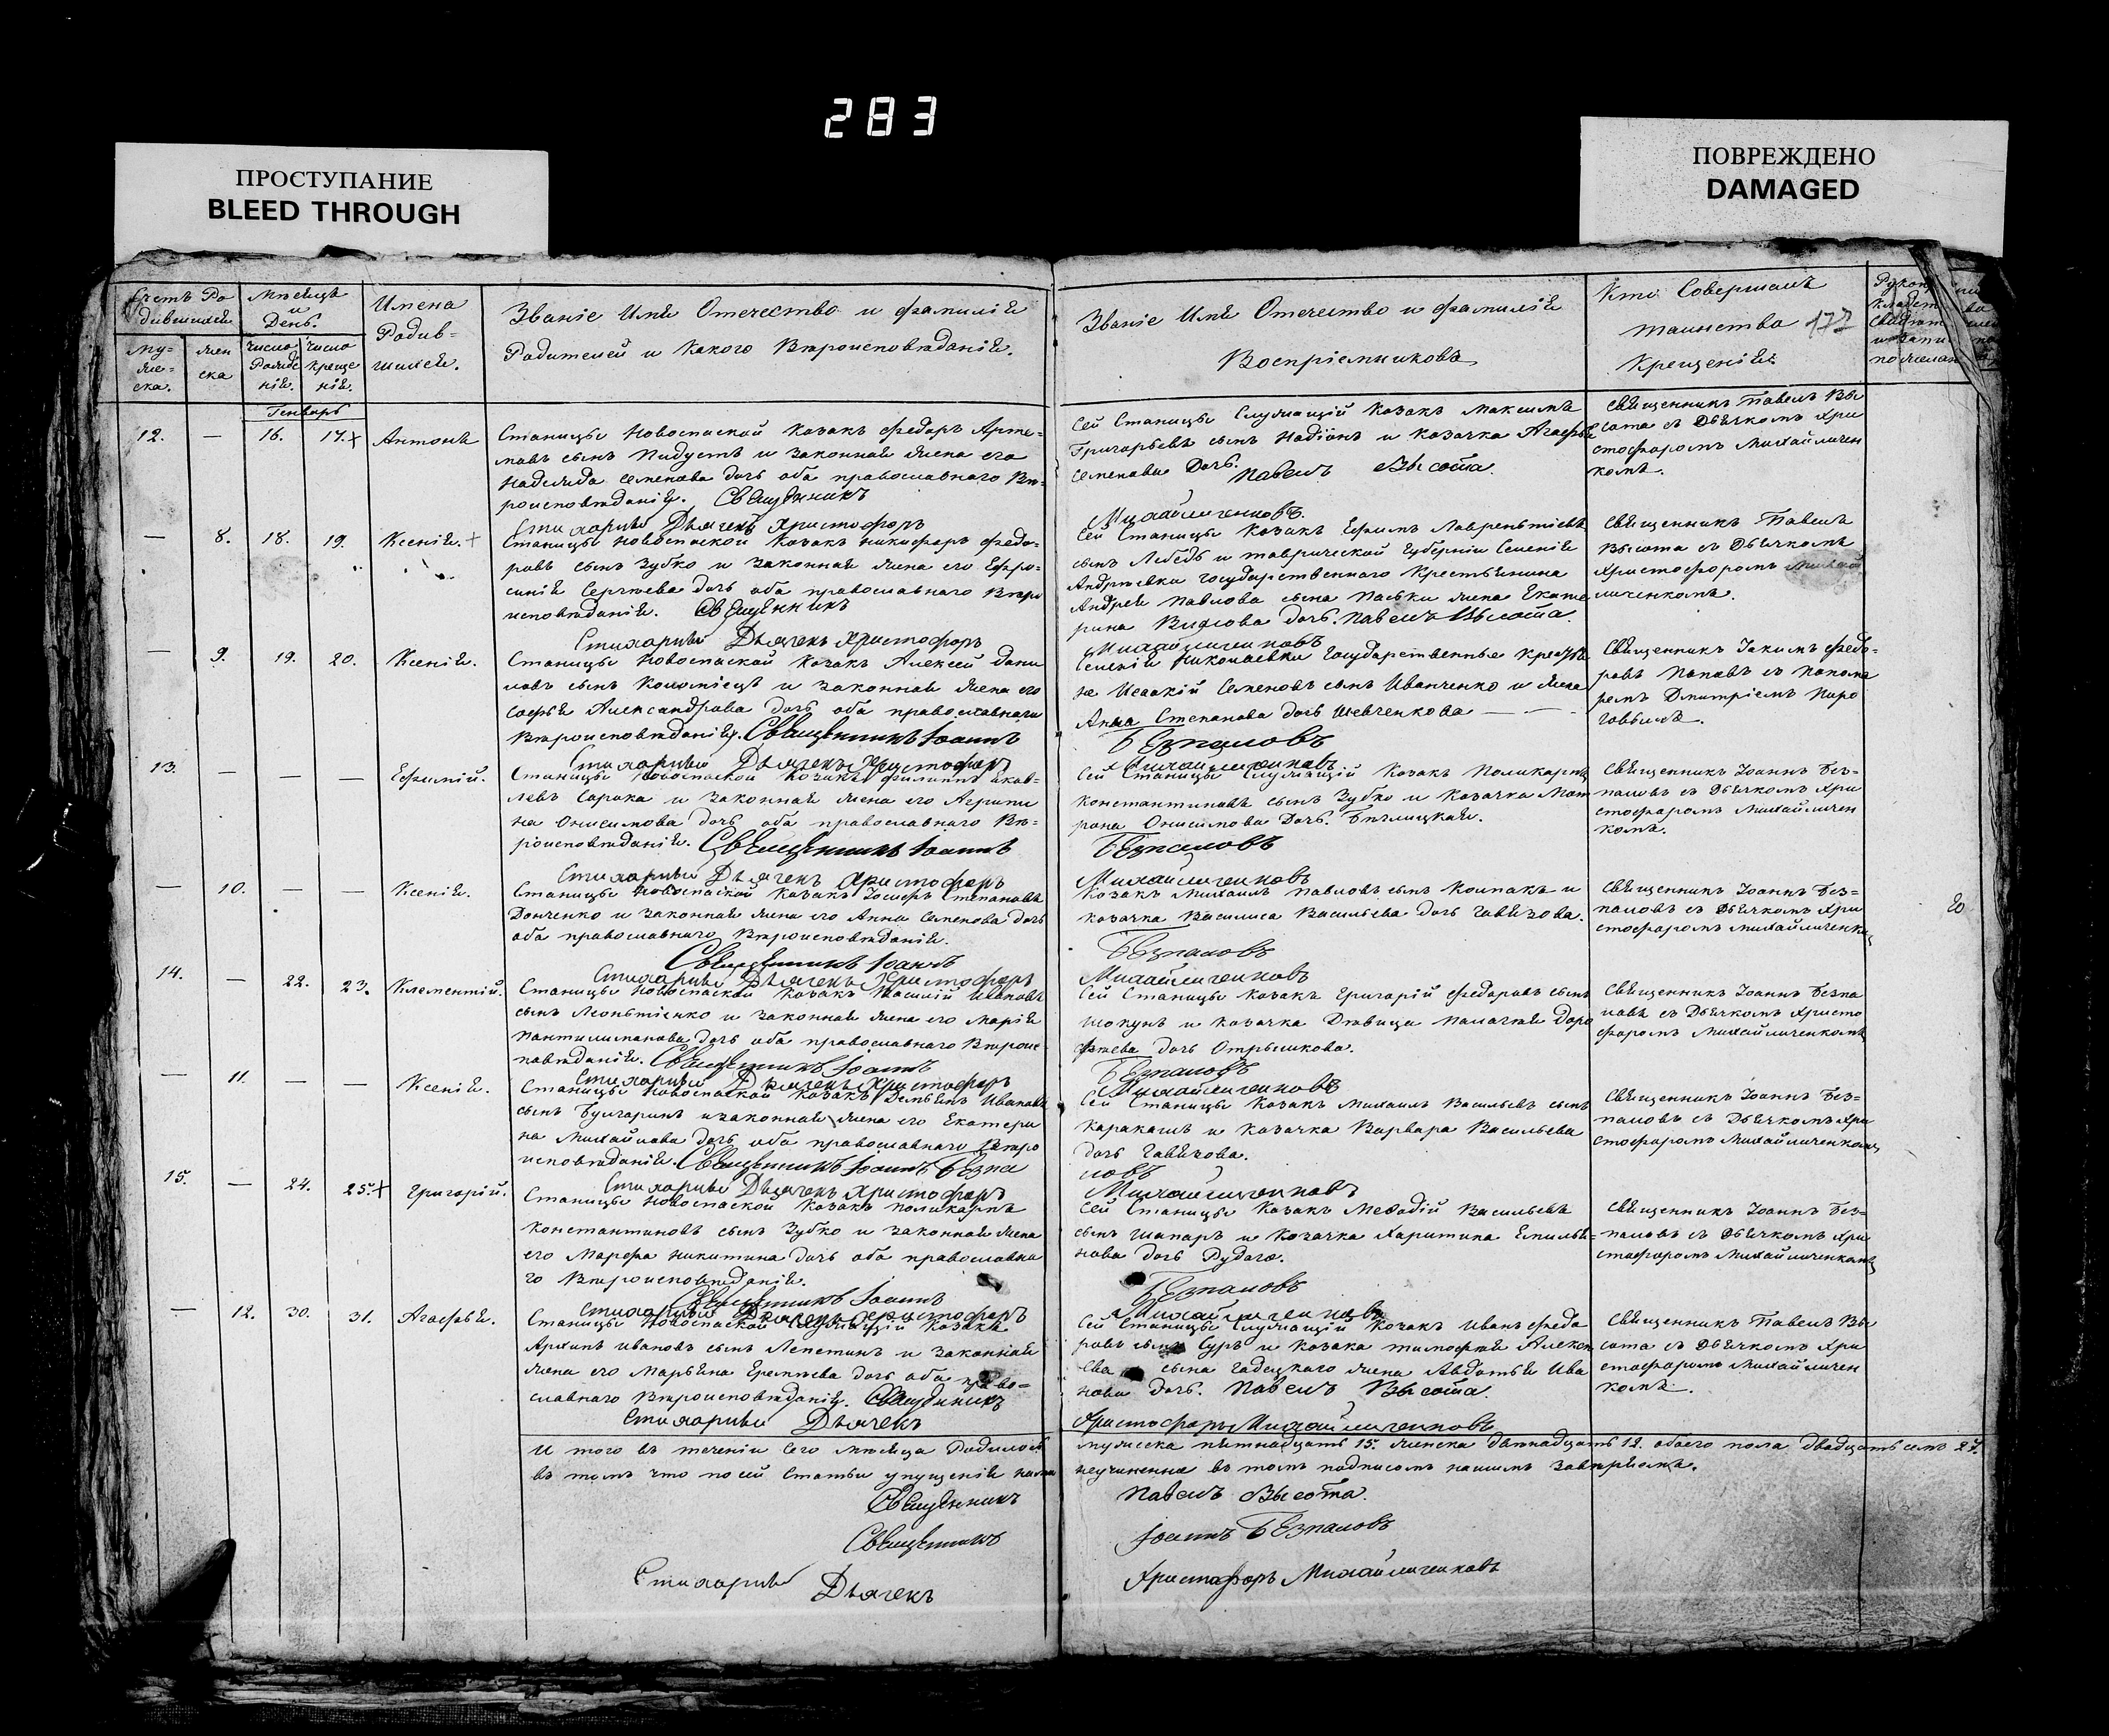 283
ПРОСТУПАНИЕ
BLEED THROUGH
ПОВРЕЖДЕНО
DAMAGED
Счетъ Ро
дившихся
Мѣсяцъ
и
День.
Имена
Родив=
шихся.
Му=
же=
ска.
жен
ска
число
Рожде
нія.
число
креще
нія.
Званіе Имя Отечество и фамилія
Родителей и какого Вѣроисповѣданія.
Званіе Имя Отечество и фамилія
Воспріемниковъ
Кто Совершалъ
таинства 177
Крещенія
Генварь
12. — 16. 17. Антонъ
Станицы Новоспаской казакъ Федоръ Арте=
мовъ сынъ Пидустъ и законная жена его
Надежда Семенова дочь оба православнаго Вѣ=
роисповѣданія. Священникъ
Стихарный Дьячекъ Христофоръ
Сей Станицы Служащій Казакъ Максимъ
Григорьевъ сынъ и казачка Агафья
Семенова Дочь. Павелъ Высота.
Михайличенковъ.
Священникъ Павелъ Вы
сота съ Дьячкомъ Хри
стофоромъ Михайличен
комъ.
— 8. 18. 19. Ксенія.
Станицы Новоспаской Казакъ Никифоръ Федо=
ровъ сынъ Зубко и Законная жена его Ефро=
синія Сергѣева дочь оба православнаго Вѣро
исповѣданія. Священникъ
Стихарный Дьячекъ Христофоръ
Сей Станицы Казакъ Ефимъ Лаврентіевъ
сынъ Лебедь и таврической Губерніи Селенія
Андрѣевки государственнаго Крестьянина
Андрея Павлова сына Паськи жена Екате
рина дочь. Павелъ Высота.
Михайличенковъ
Священникъ Павелъ
Высота съ Дьячкомъ
Христофоромъ Михай
личенкомъ.
— 9. 19. 20. Ксенія.
Станицы Новоспаской Казакъ Алексей Дани
ловъ сынъ Коломіецъ и законная жена его
Софья Александрова дочь оба православнаго
Вѣроисповѣданія. Священникъ Іоаннъ
Стихарный Дьячекъ Христофоръ
Селенія Николаевки Государственные Крестья
не Исаакій Семеновъ сынъ Иванченко и жена
Анна Степанова дочь Шевченкова — —
Безпаловъ
Михайличенковъ
Священникъ Іакимъ Федо=
ровъ Поповъ съ Понома
ремъ Дмитріемъ Поро
13. — — — Ефимій.
Станицы Новоспаской Казакъ Филиппъ Яков=
левъ Сорока и Законная жена его Агрипи
на Онисимова дочь оба православнаго Вѣ=
роисповѣданія. Священникъ Іоаннъ
Стихарный Дьячекъ Христофоръ
Сей Станицы Служащій Казакъ Поликарпъ
Константиновъ сынъ Зубко и Казачка Мот
рона Онисимова Дочь. Бѣлицкая.
Безпаловъ
Михайличенковъ
Священникъ Іоаннъ Без=
паловъ съ Дьячкомъ Хри
стофоромъ Михайличен
комъ.
— 10. — — Ксенія.
Станицы Новоспаской Казакъ Іосифъ Степановъ
Донченко и законная жена его Анна Семенова дочь
оба православнаго Вѣроисповѣданія.
Священникъ Іоаннъ
Стихарный Дьячекъ Христофоръ
Казакъ Михаилъ Павловъ сынъ Колпакъ и
казачка Василиса Васильева дочь
Безпаловъ
Михайличенковъ
Священникъ Іоаннъ Без=
паловъ съ Дьячкомъ Хри
стофоромъ Михайличенком
14. — 22. 23. Климентій.
Станицы Новоспаской Казакъ Василій Ивановъ
сынъ Леонтіенко и законная жена его Марія
Пантилимонова дочь оба православнаго Вѣроис
повѣданія. Священникъ Іоаннъ
Стихарный Дьячекъ Христофоръ
Сей Станицы Казакъ Григорій Федоровъ сынъ
и Казачка Дѣвица Палагея Доро
фѣева дочь Отрышкова.
Безпаловъ
Михайличенковъ
Священникъ Іоаннъ Безпа
ловъ съ Дьячкомъ Христо
форомъ Михайличенкомъ
— 11. — — Ксенія.
Станицы Новоспаской Казакъ Демьянъ Ивановъ
сынъ Булгаринъ и законная жена его Екатери
на Михайлова дочь оба православнаго Вѣро
исповѣданія. Священникъ Іоаннъ Безпа
Стихарный Дьячекъ Христофоръ
Сей Станицы Казакъ Михаилъ Васильевъ сынъ
Каракашъ и Казачка Варвара Васильева
дочь
ловъ
Михайличенковъ
Священникъ Іоаннъ Без=
паловъ съ Дьячкомъ Хри
стофоромъ Михайличенкомъ
15. — 24. 25. Григорій.
Станицы Новоспаской Казакъ Поликарпъ
Константиновъ сынъ Зубко и законная жена
его Марфа Никитина дочь оба православна
го Вѣроисповѣданія.
Священникъ Іоаннъ
Стихарный Дьячекъ Христофоръ
Сей Станицы Казакъ Меѳодій Васильевъ
сынъ Шапаръ и Казачка Харитина Емилья=
нова дочь
Безпаловъ
Михайличенковъ
Священникъ Іоаннъ Без=
паловъ съ Дьячкомъ Хри
стофоромъ Михайличенкомъ
— 12. 30. 31. Агафья.
Станицы Новоспаской Служащій Казакъ
Архипъ Ивановъ сынъ Лепетинъ и Законная
жена его Марьяна Еремѣева дочь оба право=
славнаго Вѣроисповѣданія. Священникъ
Стихарный Дьячекъ
Сей Станицы Служащій Козакъ Иванъ Федо
ровъ сынъ Суръ и козака Тимофея Алексѣ
ева сына Гадецкаго жена Авдотья Ива
нова дочь. Павелъ Высота.
Христофоръ Михайличенковъ
Священникъ Павелъ Вы
сота съ Дьячкомъ Хри
стофоромъ Михайличен
комъ.
И того въ теченіи Сего мѣсяца Родилось мужеска пятнадцать 15. женска двѣнадцать 12. обоего пола двадцать семь 27.
въ томъ что по сей Статьи упущенія нами неучиненно въ томъ подписомъ нашимъ Завѣряемъ.
Священникъ Павелъ Высота.
Священникъ Іоаннъ Безпаловъ
Стихарный Дьячекъ Христофоръ Михайличенковъ